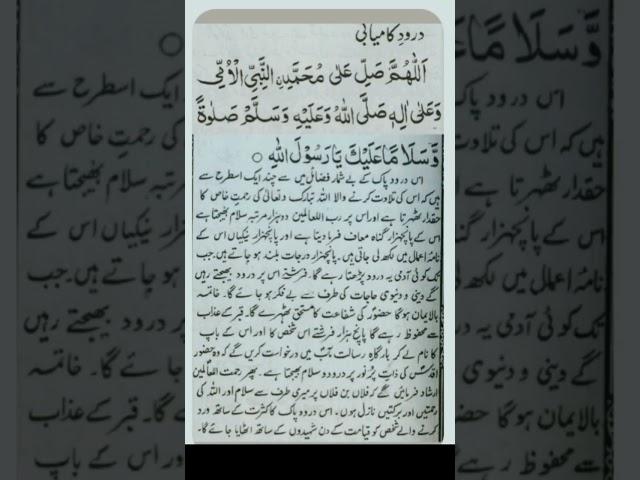 درودِ کامیابی
اَللّٰهُمَّ صَلِّ عَلٰی مُحَمَّدِنِ النَّبِیِّ الْاُمِّی
وَعَلٰی اٰلِهٖ صَلَّی اللّٰهُ وَعَلَیْهِ وَسَلَّمْ صَلٰوةً
وَّسَلَا مًا عَلَیْكَ یَا رَسُوْلَ اللّٰهِ ○
اس درود پاک کے بے شمار فضائل میں سے چند ایک اسطرح سے
ہیں کہ اس کی تلاوت کرنے والا اللہ تبارک وتعالیٰ کی رحمتِ خاص کا
حقدار ٹھہرتا ہے اور اس پر رب العالمین دو ہزار مرتبہ سلام بھیجتا ہے
اس کے پانچہزار گناہ معاف فرما دیتا ہے اور پانچہزار نیکیاں اس کے
نامۂ اعمال میں لکھ لی جاتی ہیں۔ پانچہزار درجات بلند ہو جاتے ہیں جب
تک کوئی آدمی یہ درود پڑھتا رہے گا۔ فرشتے اس پر درود بھیجتے رہیں
گے دینی و دنیوی حاجات کی طرف سے بے فکر ہو جائے گا۔ خاتمہ
بالایمان ہو گا حضورؐ کی شفاعت کا مستحق ٹھہرے گا۔ قبر کے عذاب
سے محفوظ رہے گا پانچ ہزار فرشتے اس شخص کا اور اس کے باپ
کا نام لے کر بارگاہِ رسالت مآبؐ میں درخواست کریں گے کہ وہ حضور
اقدسؐ کی ذاتِ پُر نور پر درود و سلام بھیجتا ہے۔ پھر رحمت العالمین
ارشاد فرمائیں گے کہ فلاں بن فلاں پر میری طرف سے سلام اور اللہ کی
رحمتیں اور برکتیں نازل ہوں۔ اس درود پاک کا کثرت کے ساتھ ورد
کرنے والے شخص کو قیامت کے دن شہیدوں کے ساتھ اٹھایا جائے گا۔